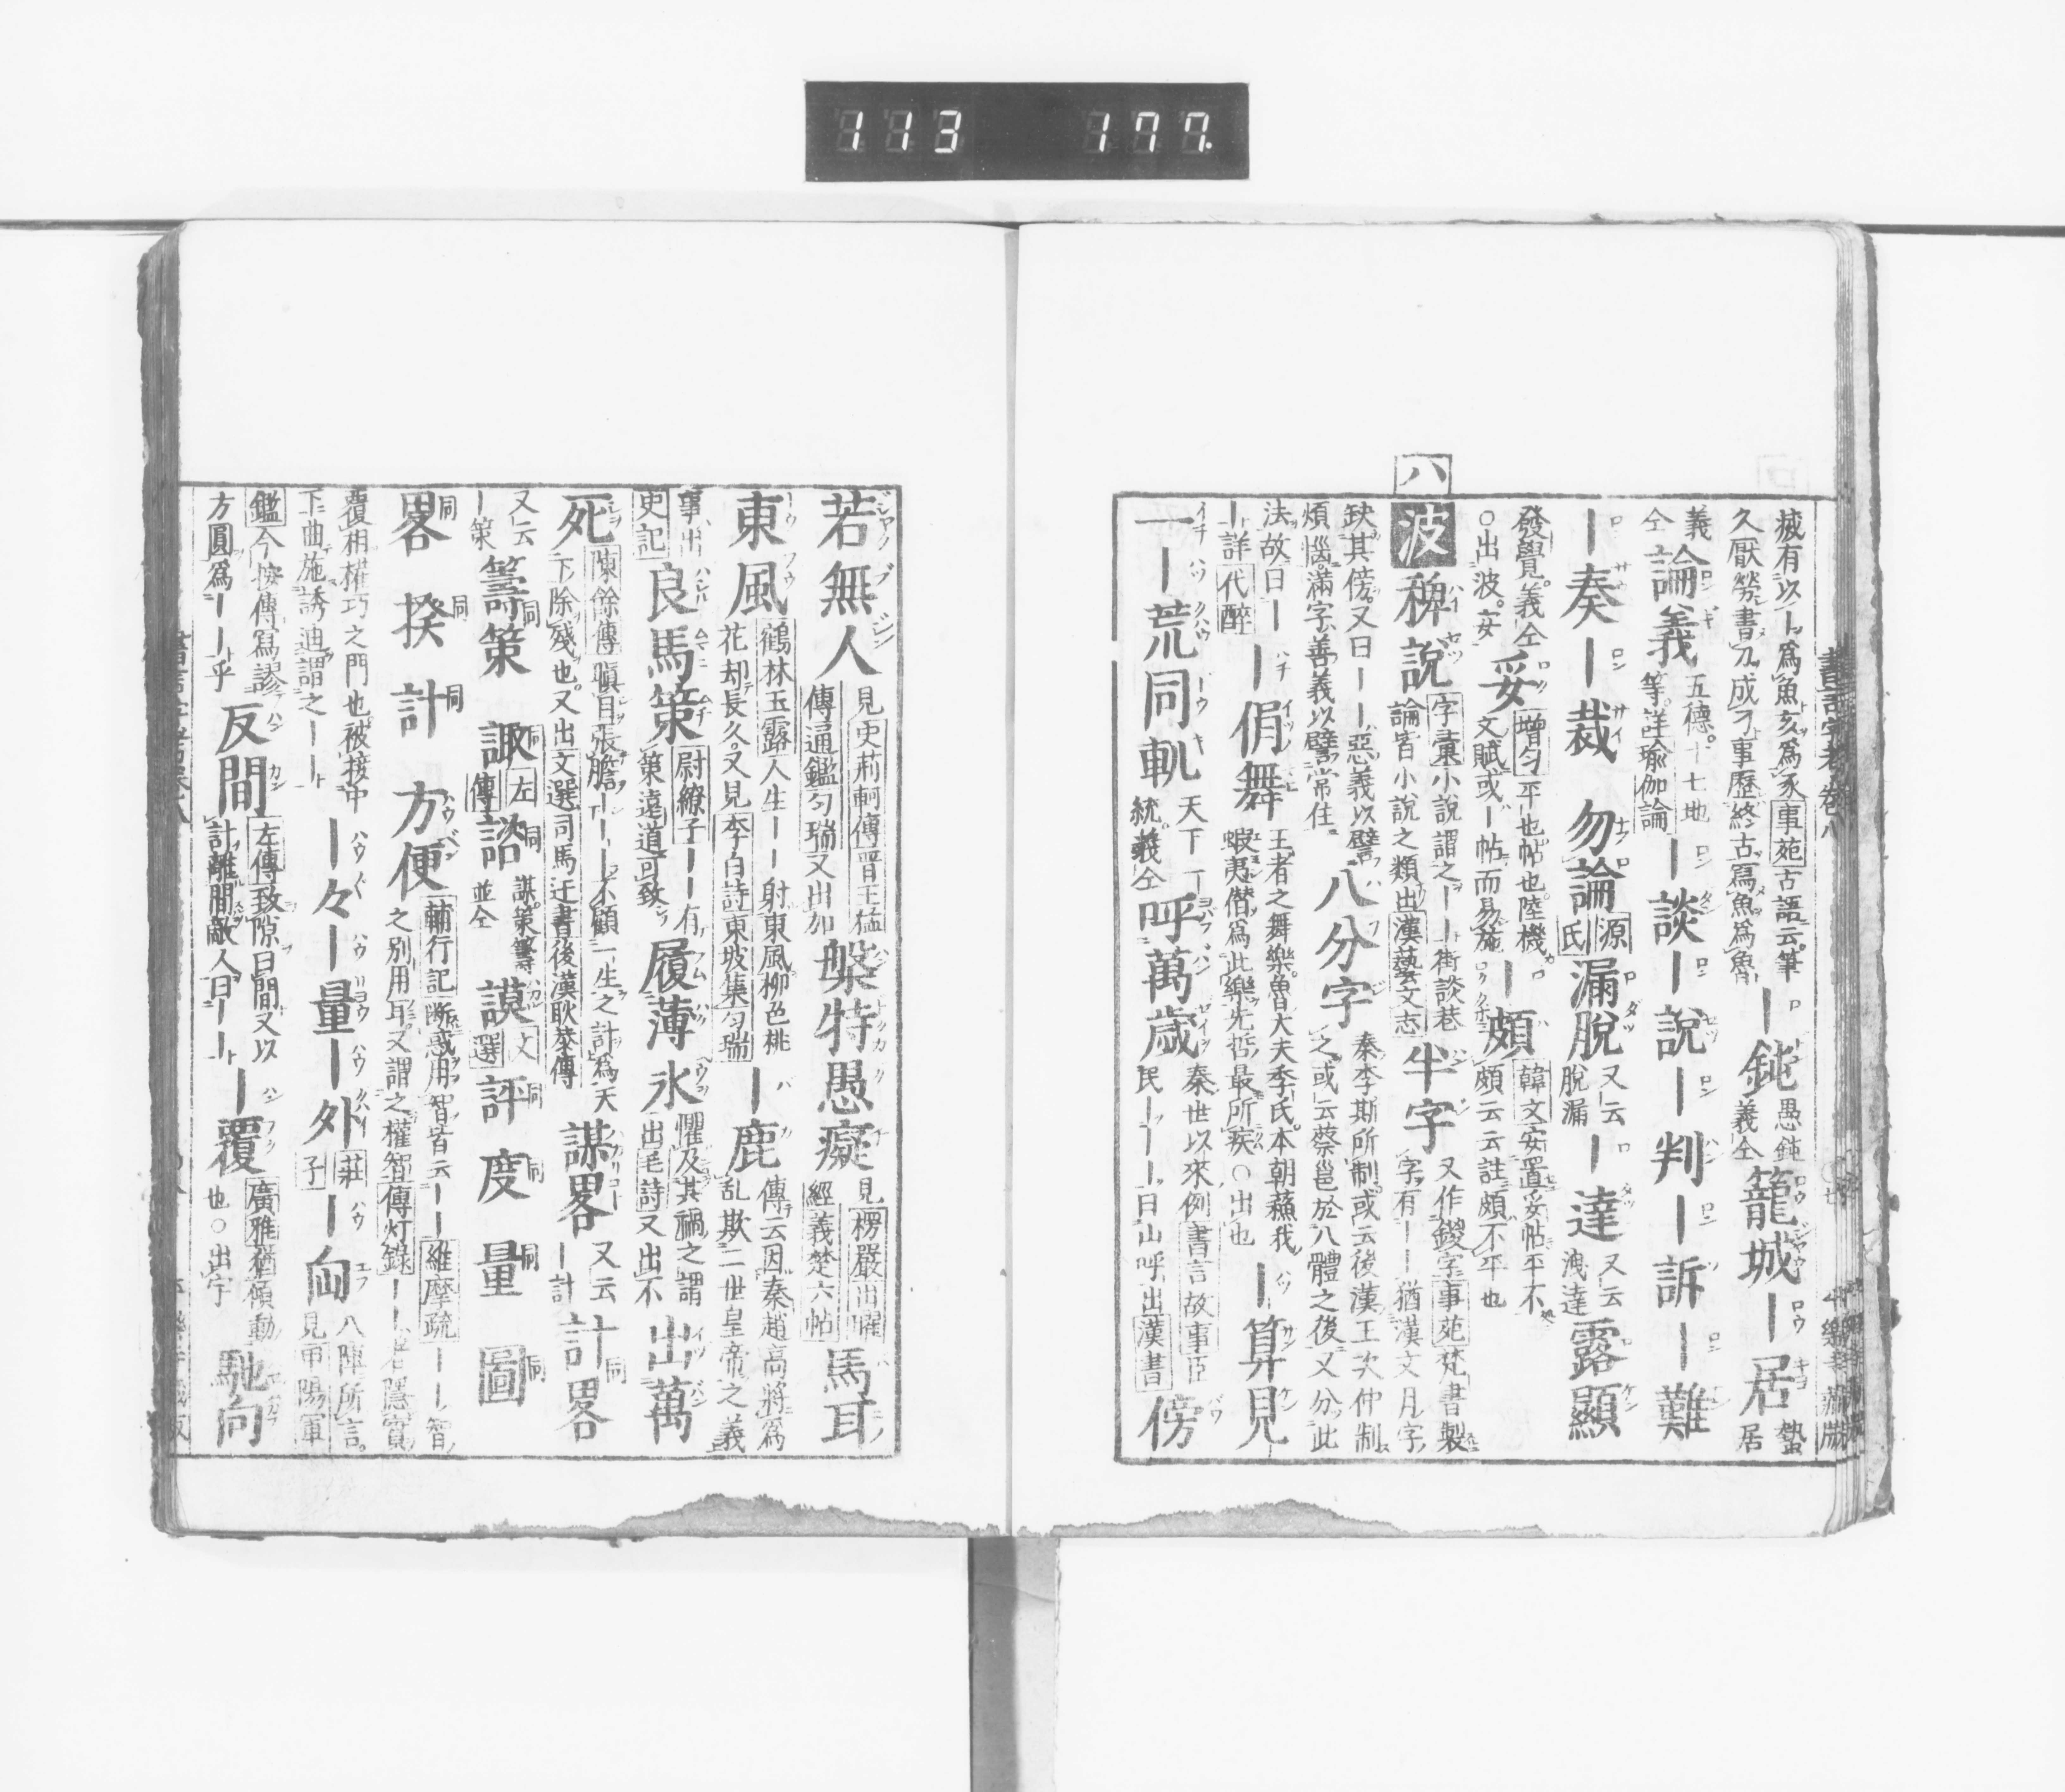 113 177.
書言字考卷八
㨖有以｜為魚亥為豕事苑古語云筆
久厭勞書刀成刁事歷終古寫魚為魯
｜鈍
愚鈍
義仝
籠城
｜居
蟄
居
義
仝
論義
五德十七地
等詳瑜伽論
｜談
｜說
｜判
｜訴
｜難
｜奏
｜裁
勿論
源
氏
漏脫
又云
脫漏
｜達
又云
洩達
露顯
發覺義仝
○出波安
妥
增勻平也帖也陸機
文賦或｜帖而易施
｜頗
韓文安置妥帖平不
頗云云註頗不平也
ハ
波
稗說
字彙小說謂之｜｜街談巷
論皆小說之類出漢藝文志
半字
又作鍐字事苑梵書製
字有｜｜猶漢文月字
缺其傍又曰｜｜惡義以譬
煩惱滿字善義以譬常住
八分字
秦李斯所制或云後漢王次仲制
之或云蔡邕於八體之後又分此
法故曰｜
｜詳代醉
｜佾舞
王者之舞樂魯大夫季氏本朝蘇我
蝦夷僭為此樂先哲最所疾○出也
｜算見
一｜荒同軌
天下一
統義仝
呼萬歲
秦世以來例書言故事臣
民｜｜｜曰山呼出漢書
傍
若無人
見史荊軻傳晋王猛
傳通鑑勻瑞又出加
槃特愚癡
見楞嚴出曜
經義楚六帖
馬耳
東風
鶴林玉露人生｜｜射東風柳色桃
花却長久又見李白詩東坡集勻瑞
｜鹿
傳云因秦趙高將為
乱欺二世皇帝之義
事出
史記
良馬策
尉繚子｜｜有
策遠道可致
履薄氷
懼及其禍之謂
出毛詩又出不
出萬
死
陳餘傳瞋目張膽｜｜不顧一生之計為天
下除殘也又出文選司馬迁書後漢耿恭傳
謀畧
又云
｜計
計畧
同
又云
｜策
籌策
同
諏
同
左
傳
諮
同
謀策籌
並仝
謨
文
選
評
同
度
同
量
同
圖
同
畧
同
揆
同
計
同
方便
輔行記断惑用智音云｜｜維摩疏｜｜智
之別用耳又謂之權智傳灯錄｜｜
覆相權巧之門也被接中
下曲施誘迪謂之｜｜
｜々
｜量
｜外
莊
子
｜向
八陣所言
見甲陽軍
鑑今按傳寫謬
方圓為｜｜乎
反間
左傳致隙曰間又以
計離間敵人曰｜｜
｜覆
廣雅猶傾動
也○出宇
馳向